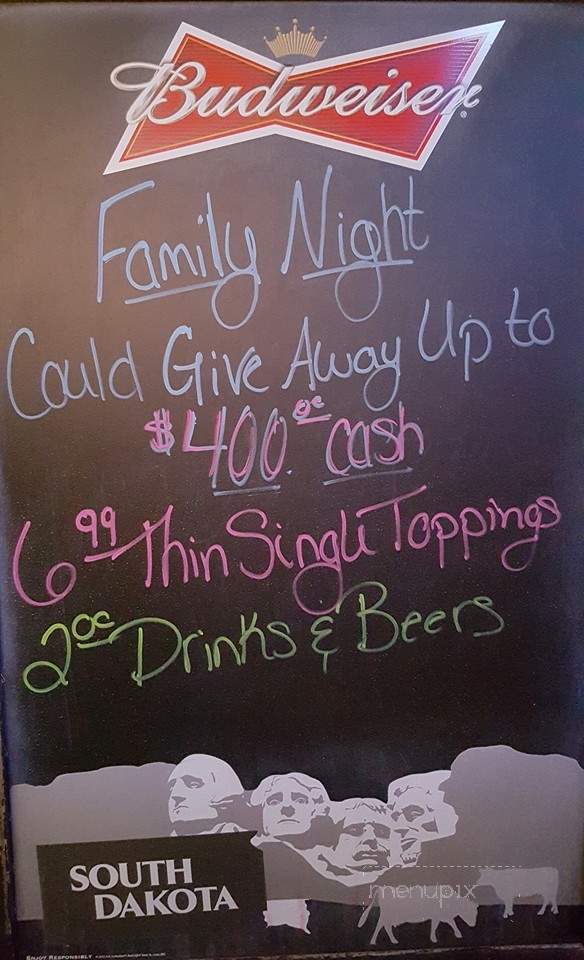 Budweiser
Family Night
Could Give Away Up to
$400.00 cash
6.99 Thin Single Toppings
2.00 Drinks & Beers
SOUTH
DAKOTA
menupix
ENJOY RESPONSIBLY